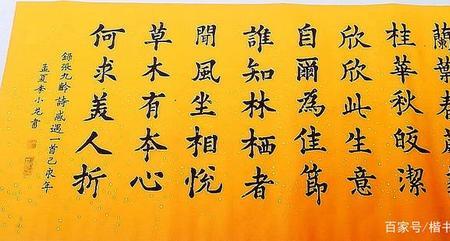 蘭葉春葳
桂華秋皎潔
欣欣此生意
自爾爲佳節
誰知林栖者
聞風坐相悅
草木有本心
何求美人折
錄張九齡詩感遇一首己亥年
孟夏李小龙書
百家号/楷书